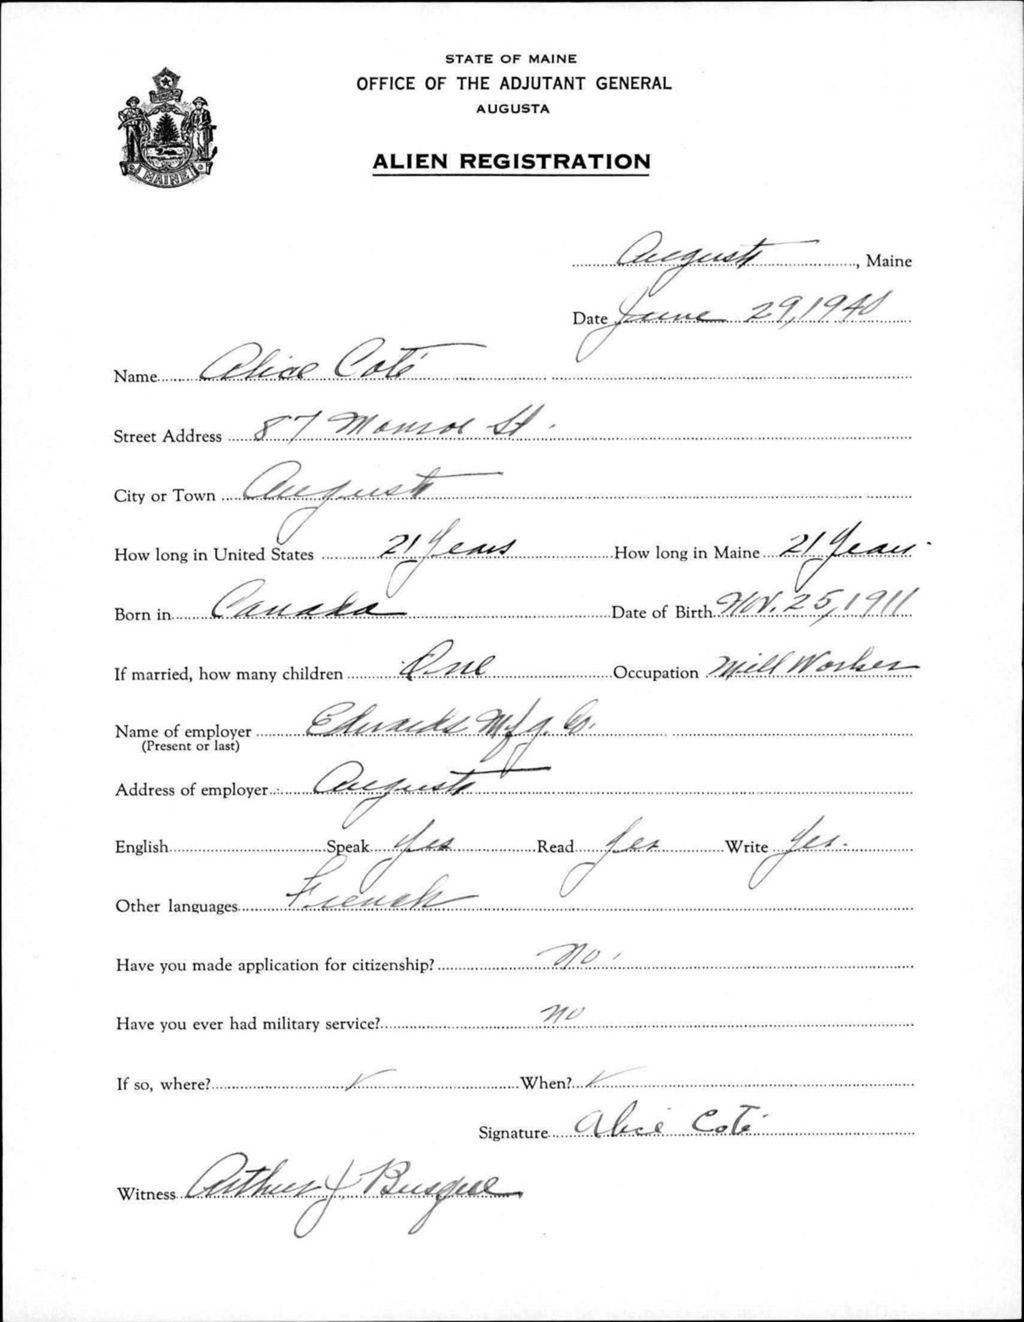 STATE OF MAINE
OFFICE OF THE ADJUTANT GENERAL
AUGUSTA
ALIEN REGISTRATION
MAINE
Augusta, Maine
Date June 29, 1940
Name Alice Coté
Street Address 87 Monroe St.
City or Town Augusta
How long in United States 21 Years How long in Maine 21 Years
Born in Canada Date of Birth Nov. 25, 1911
If married, how many children One Occupation Mill Worker
Name of employer Edwards Mfg. Co.
(Present or last)
Address of employer Augusta
English Speak Yes Read Yes Write Yes.
Other languages French
Have you made application for citizenship? No.
Have you ever had military service? No
If so, where? ✓ When? ✓
Signature Alice Coté
Witness Arthur J. Busque